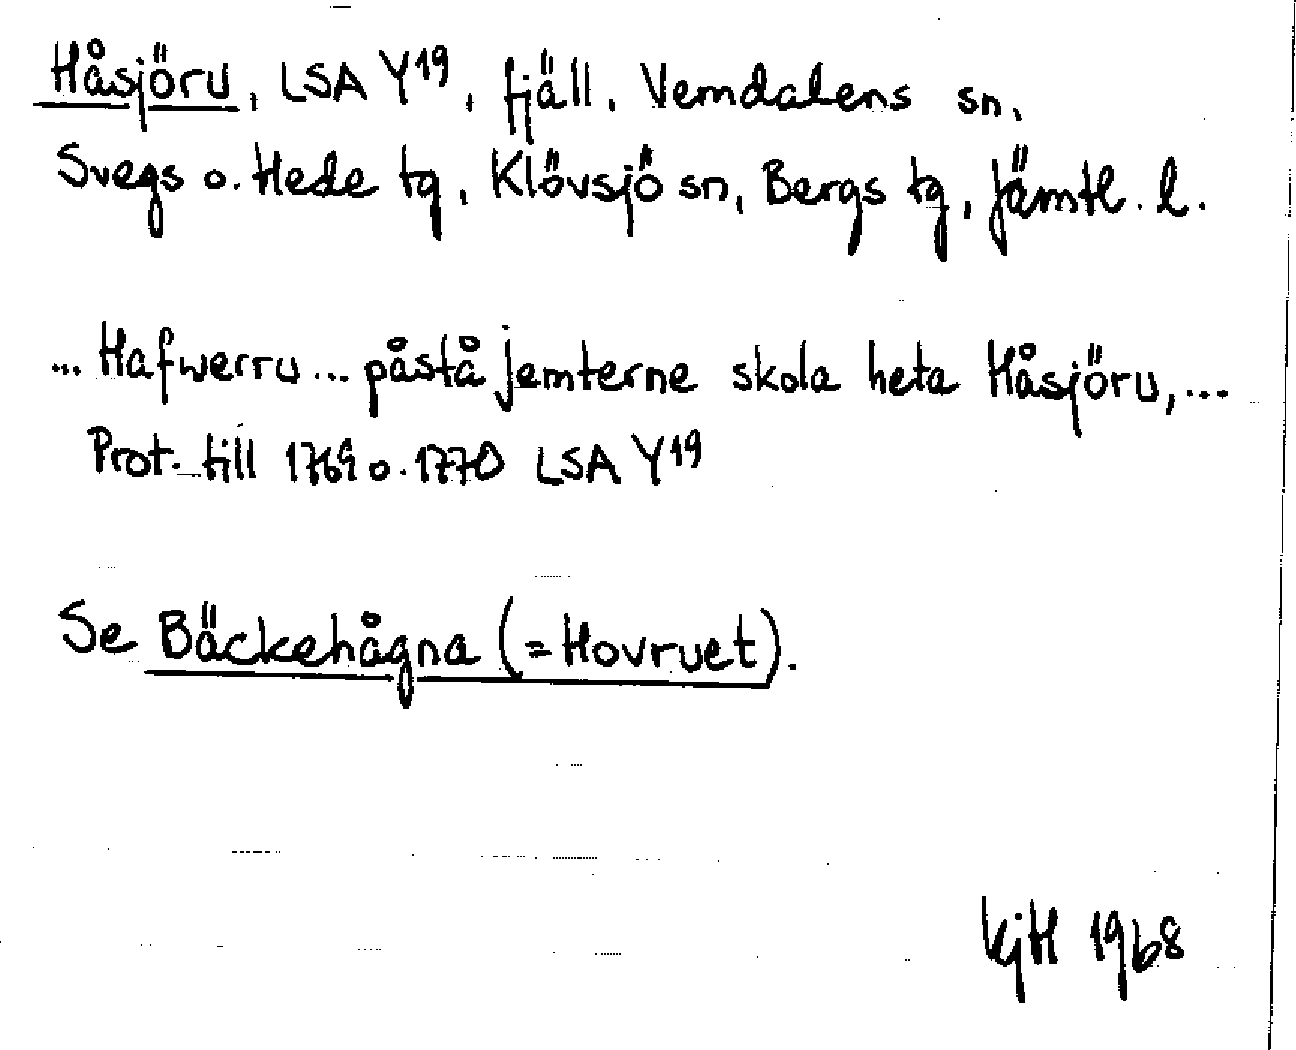 Håsjöru, LSA Y19, fjäll, Vemdalens sn,
Svegs o. Hede tg, Klövsjö sn, Bergs tg, Jämtl. l.
... Hafwerru ... påstå jemterne skola heta Håsjöru, ...
Prot. till 1769 o. 1770 LSA Y19
Se Bäckehågna (= Hovruet).
KjH 1968